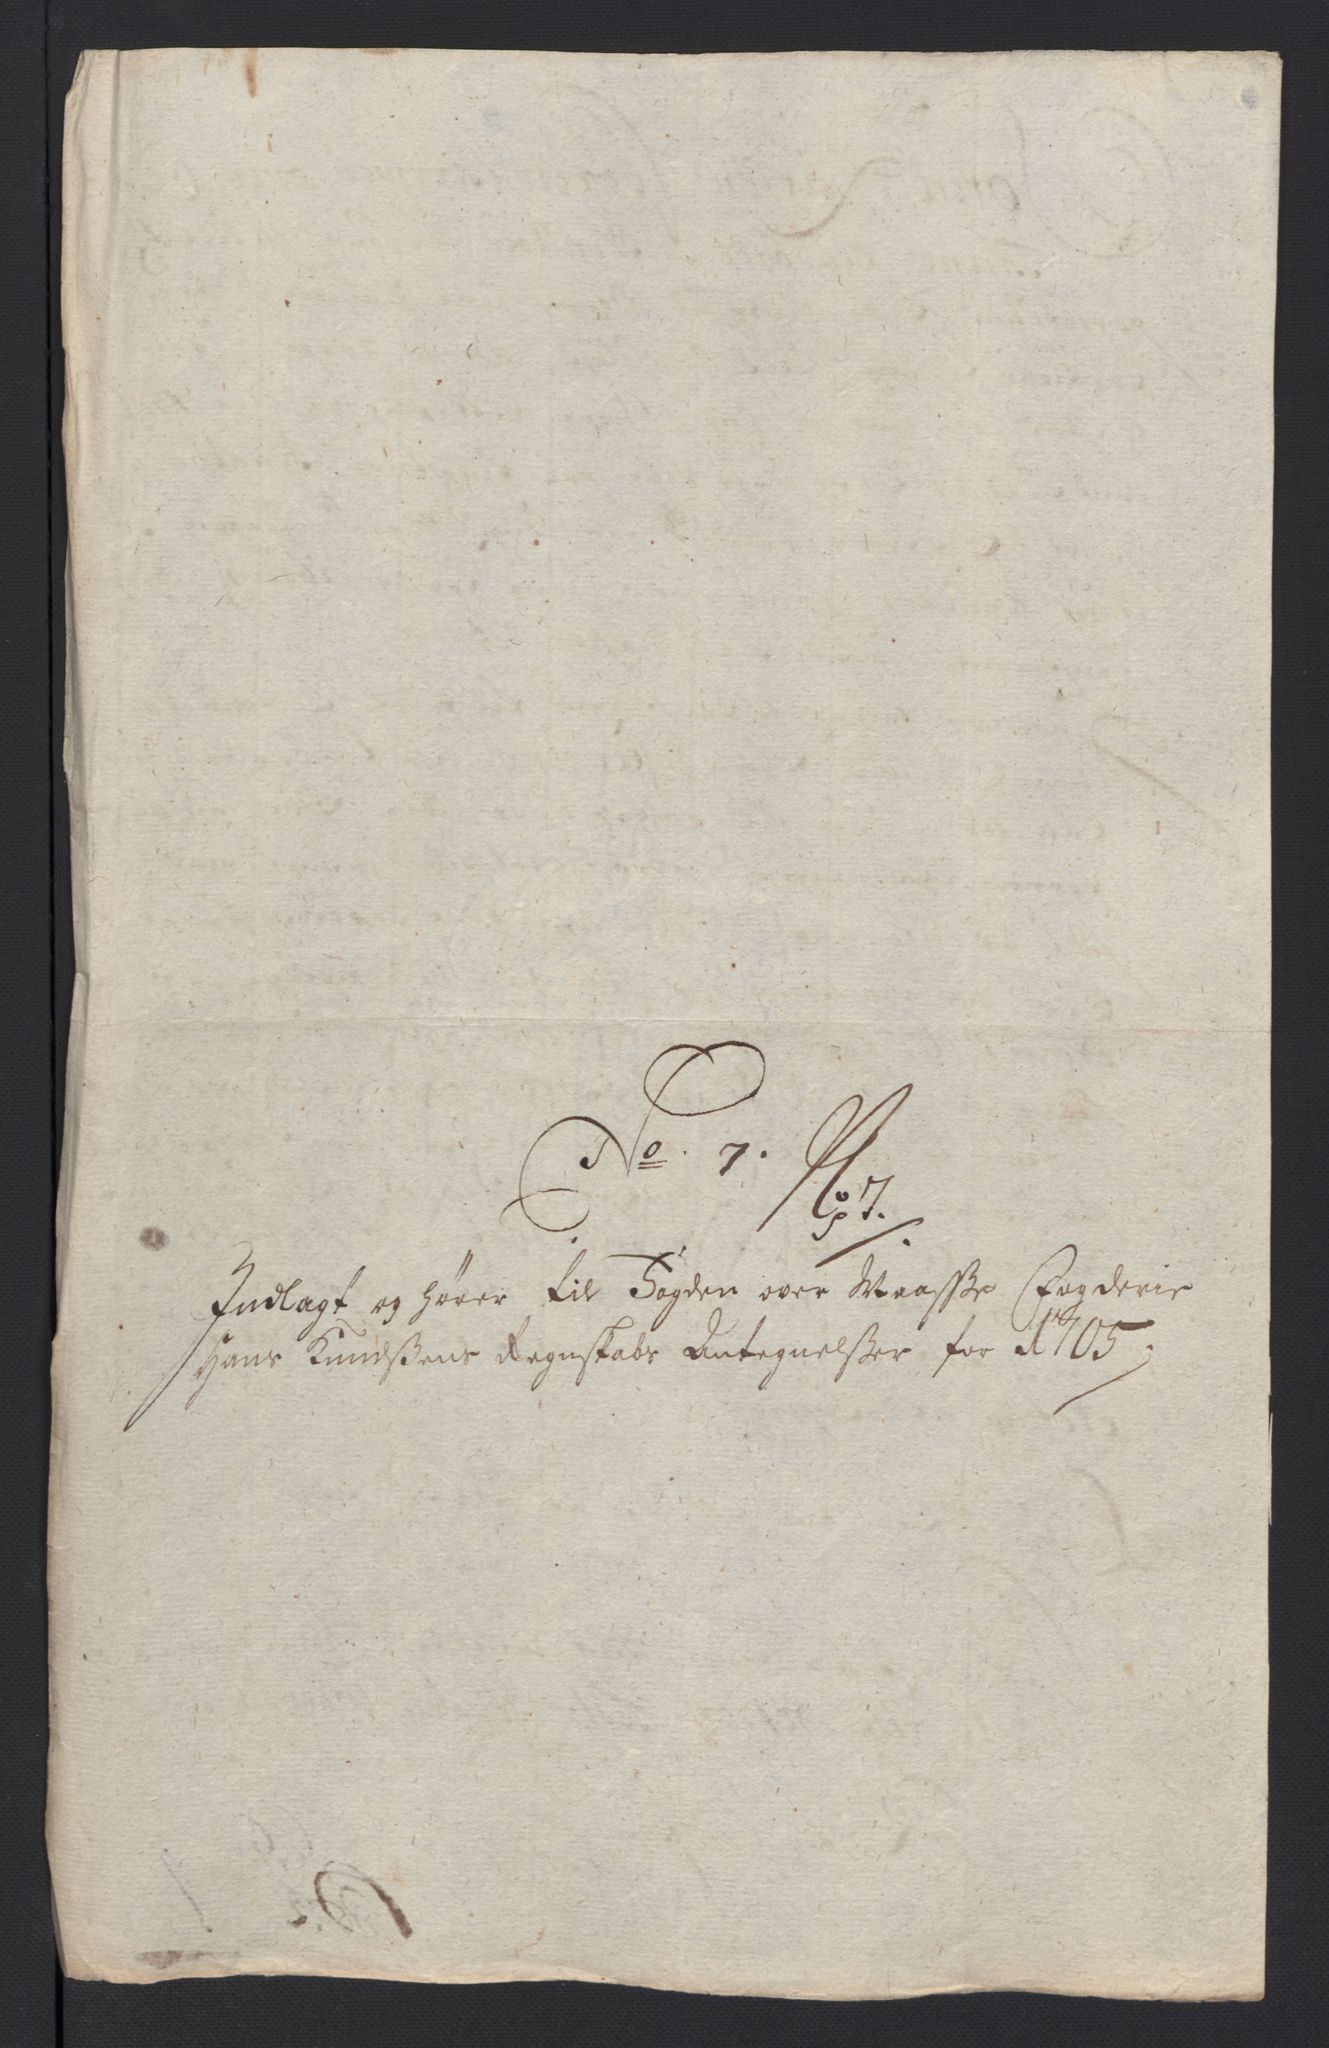 No. 7. No 7.
Indlagt og hører til Fogden over Waasse Fogderie
Hans Knudsens Regnskabs Antegnelsser for A 1705